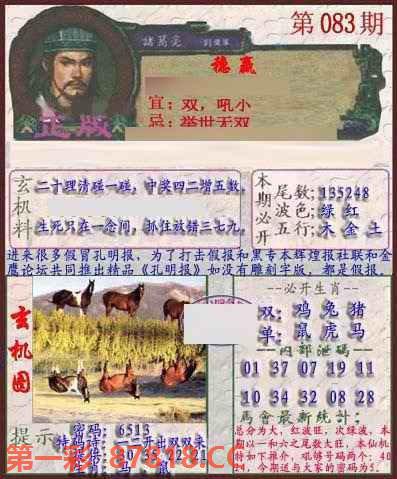 第083期
諸葛亮
穩贏
宜：双，吼小
忌：举世无双
正版
玄机料
二十理清碰一碰，中奖四二增五数。
生死只在一念间，抓住放错三七九。
本期必开
尾数;135248
波色;绿 红
五行;木 金 土
进来很多假冒孔明报，为了打击假报和黑专本辉煌报社联和金
鹰论坛共同推出精品《孔明报》如没有雕刻字版，都是假报。
玄机图
必开生肖
双:鸡 兔 猪
单:鼠 虎 马
内部泄码
01 37 07 19 11
10 34 32 08 28
馬會最新統計:
总分为大，红波旺，次绿波，本
期以一和六之尾数大旺，本仙机
特如下推介，吼够号码两个：40
24，今期道与大家的密码为5.
提示
密码: 6513
特码诗:一三开出双双来
第一彩 87818.CC